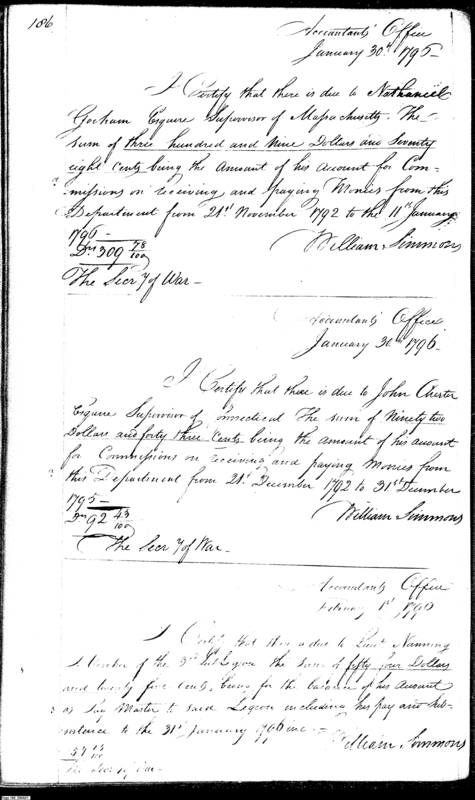 186
Accountants Office
January 30th 1795
I Certify that there is due to Nathaniel
Gorham Esquire Supervisor of Massachusetts. The
sum of three hundred and Nine Dollars and Seventy
eight Cents being the Amount of his Account for Com-
missions on receiving and paying Monies from this
Department from 21st November 1792 to the 11th January
1796 -
Drs 309 78/100
William Simmons
The Secry of War -
Accountants Office
January 30th 1796
I Certify that there is due to John Chester
Esquire Supervisor of Connecticut The sum of Ninety two
Dollars and forty three Cents being the amount of his account
for Commissions on receiving and paying Monies from
this Department from 21st December 1792 to 31st December
1795 -
Drs 92 43/100
William Simmons
The Secry of War -
Accountants Office
February 1st 1796
I Certify that there is due to Lieut Nanning
of the 3rd Sub Legion the sum of fifty four Dollars
and twenty five Cents, being for the balance of his Account
as Pay Master to said Legion including his pay and sub-
sistence to the 31st January 1796 inc
54
William Simmons
The Secry of War -